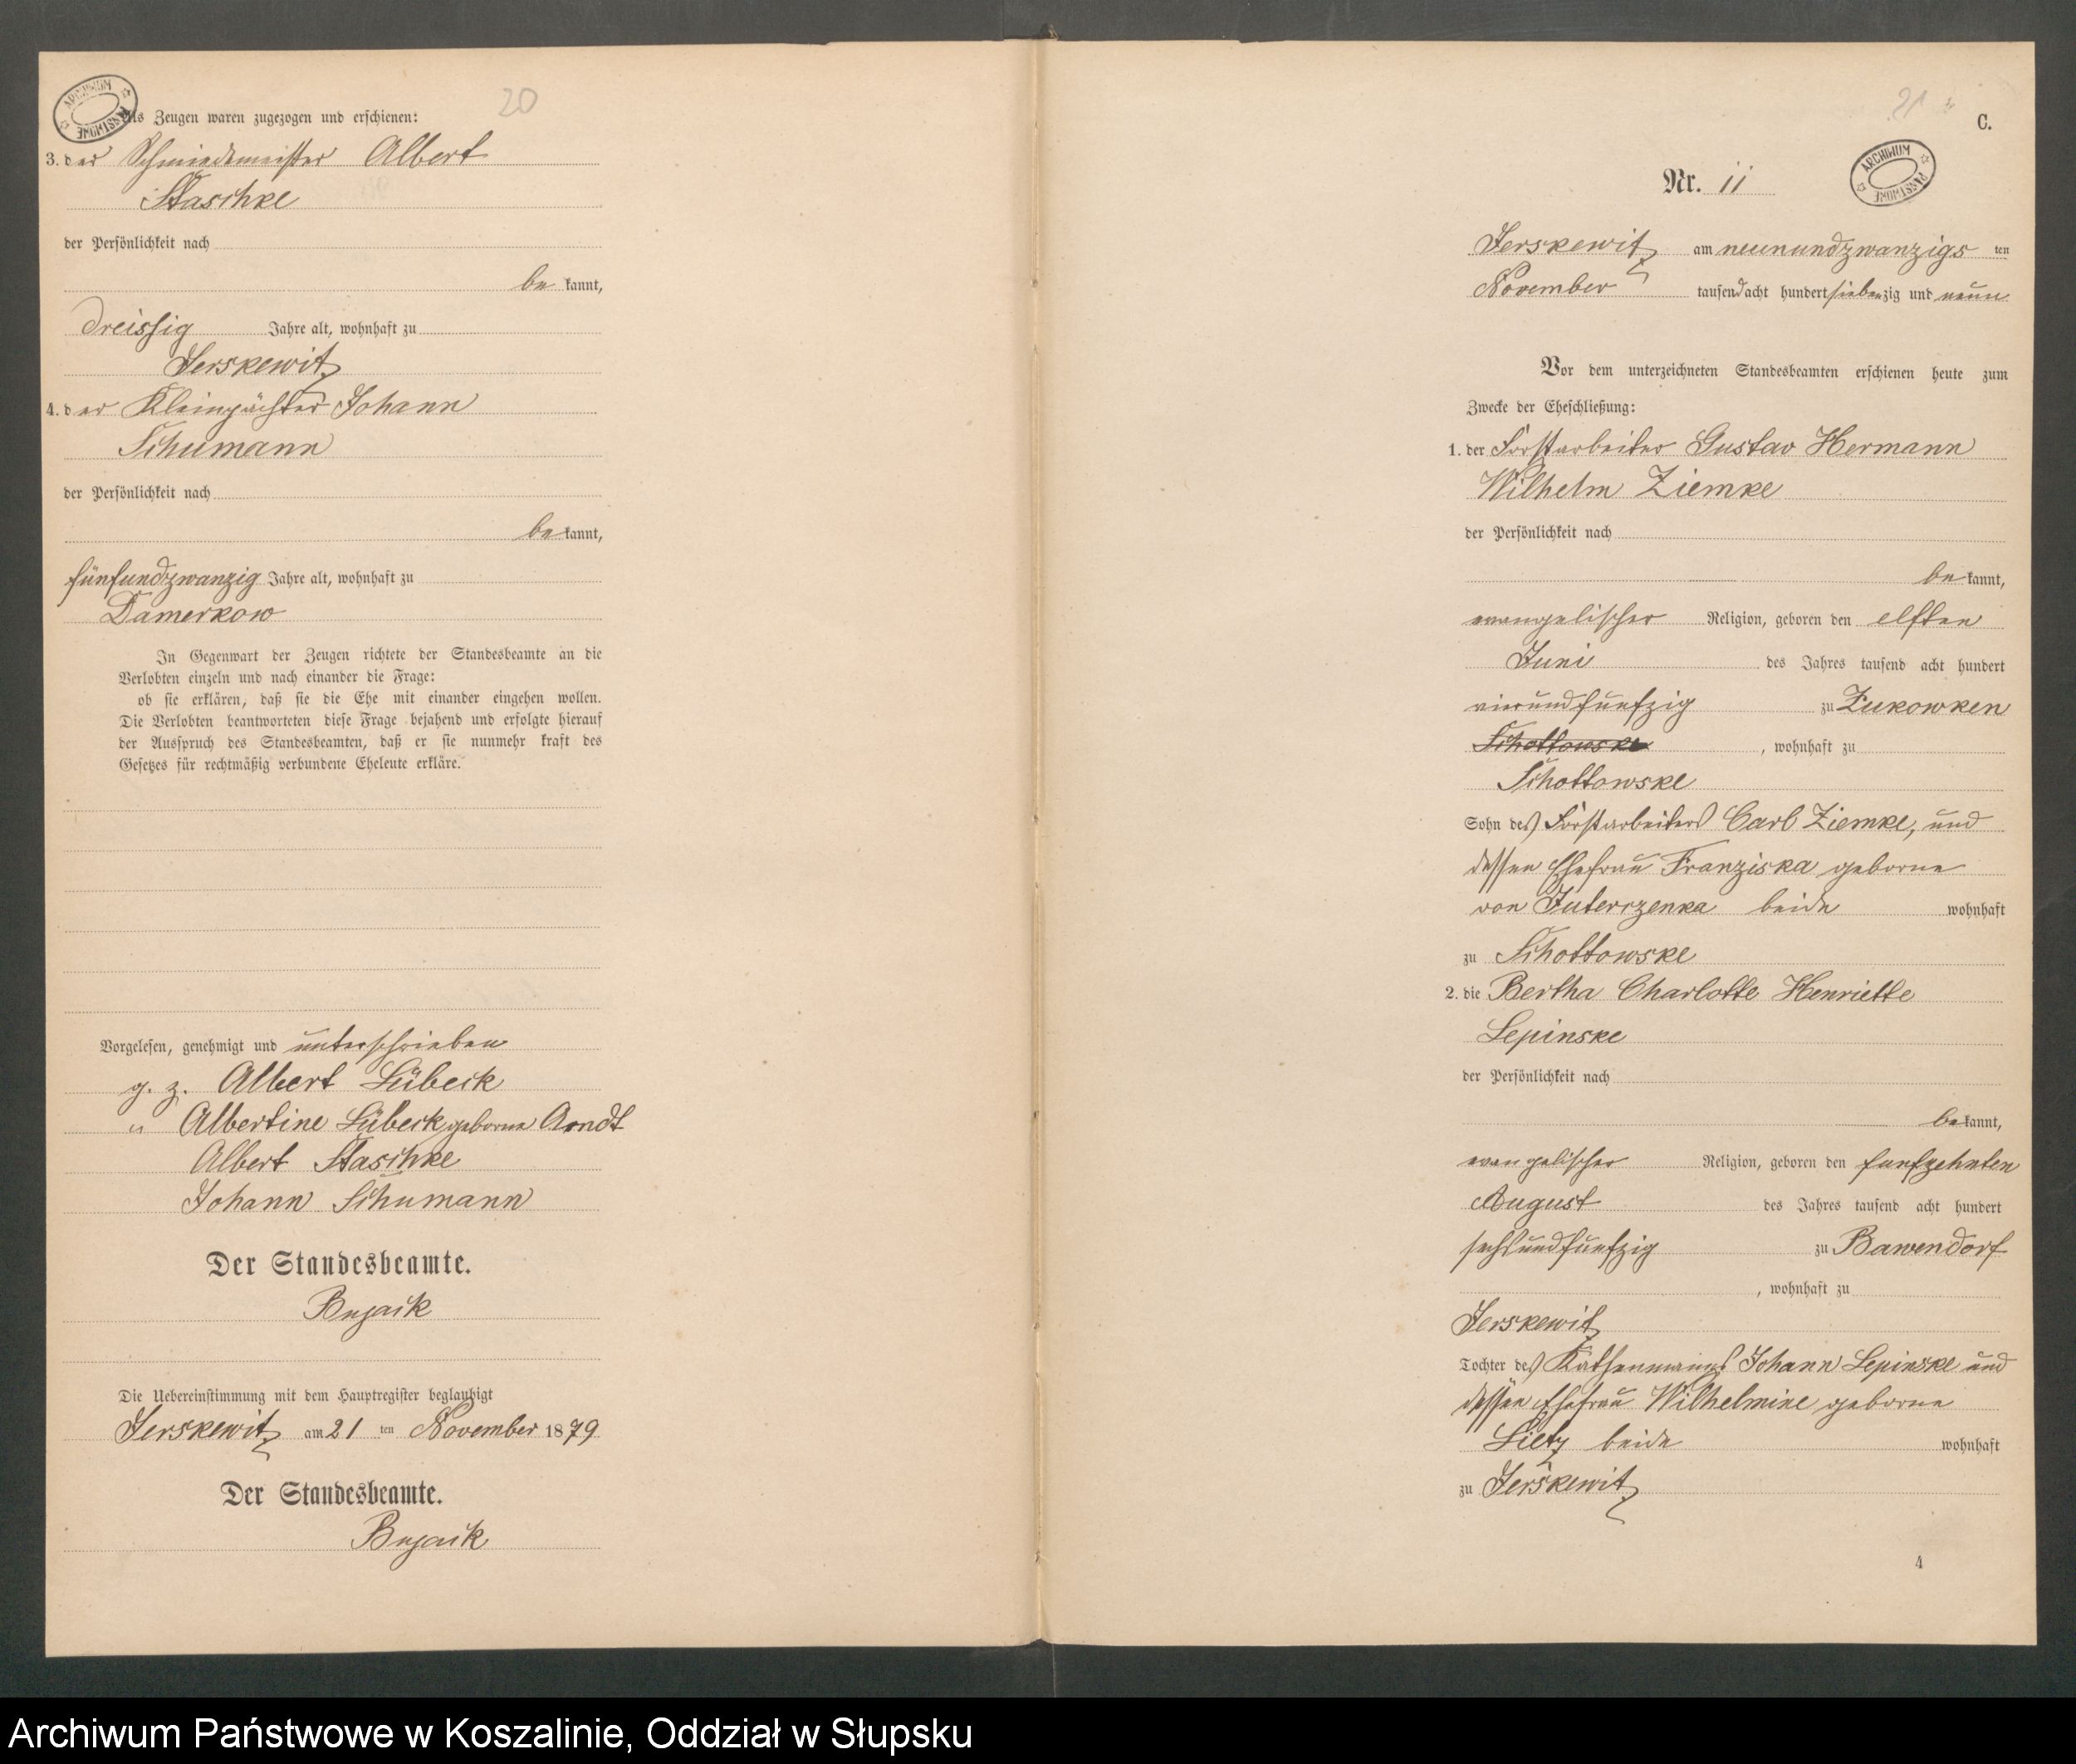 20
ARCHIWUM PAŃSTWOWE
Als Zeugen waren zugezogen und erschienen:
3. der Schmiedemeister Albert
Staschke
der Persönlichkeit nach
be kannt,
dreissig Jahre alt, wohnhaft zu
Jerskewitz
4. der Kleinpächter Johann
Schumann
der Persönlichkeit nach
be kannt,
fünfundzwanzig Jahre alt, wohnhaft zu
Damerkow
In Gegenwart der Zeugen richtete der Standesbeamte an die
Verlobten einzeln und nach einander die Frage:
ob sie erklären, daß sie die Ehe mit einander eingehen wollen.
Die Verlobten beantworteten diese Frage bejahend und erfolgte hierauf
der Ausspruch des Standesbeamten, daß er sie nunmehr kraft des
Gesetzes für rechtmäßig verbundene Eheleute erkläre.
Vorgelesen, genehmigt und unterschrieben
g. z. Albert Lübeck
" Albertine Lübeck geborne Arndt
Albert Staschke
Johann Schumann
Der Standesbeamte.
Die Uebereinstimmung mit dem Hauptregister beglaubigt
Jerskewitz am 21 ten November 1879
Der Standesbeamte.
C.
Nr. 11
ARCHIWUM PAŃSTWOWE
Jerskewitz am neunundzwanzigs ten
November tausend acht hundert siebenzig und neun
Vor dem unterzeichneten Standesbeamten erschienen heute zum
Zwecke der Eheschließung:
1. der Forstarbeiter Gustav Hermann
Wilhelm Ziemke
der Persönlichkeit nach
be kannt,
evangelischer Religion, geboren den elften
Juni des Jahres tausend acht hundert
vierundfunfzig zu Zukowken
Schottowske, wohnhaft zu
Schottowske
Sohn des Forstarbeiters Carl Ziemke, und
dessen Ehefrau Franziska geborne
von beide wohnhaft
zu Schottowske
2. die Bertha Charlotte Henriette
Lepinske
der Persönlichkeit nach
be kannt,
evangelischer Religion, geboren den funfzehnten
August des Jahres tausend acht hundert
sechsundfunfzig zu Bawendorf
, wohnhaft zu
Jerskewitz
Tochter des Kathenmanns Johann Lepinske und
dessen Ehefrau Wilhelmine geborne
Lietz beide wohnhaft
zu Jerskewitz
4
Archiwum Państwowe w Koszalinie, Oddział w Słupsku